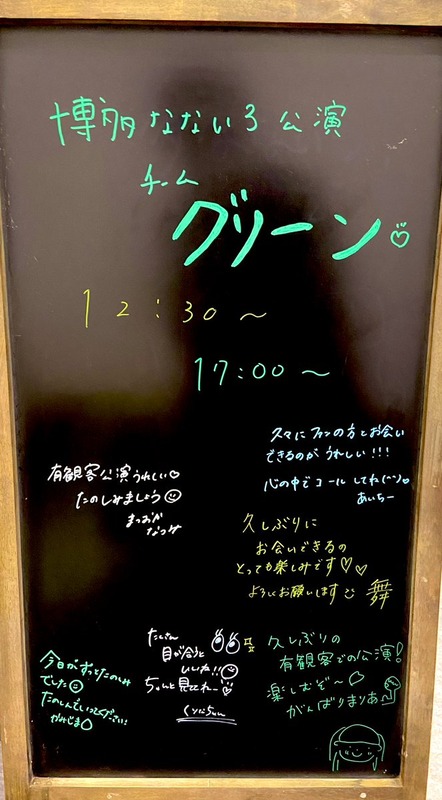 博多なないろ公演
チーム
グリーン♡
12:30〜
17:00〜
久々にファンの方とお会い
できるのがうれしい!!!
心の中でコールしてね(^^)
あいちー
有観客公演うれしい♡
たのしみましょう☺
まつおか
なつみ
久しぶりに
お会いできるの
とっても楽しみです♡♡
よろしくお願いします☺ 舞
たくさん
目が合うと
いいね!!☺
ちゃんと見ててねー♡
今日がずっとたのしみ
でした☺
たのしんでいってください!
久しぶりの
有観客での公演!
楽しむぞ〜
がんばりまりあ